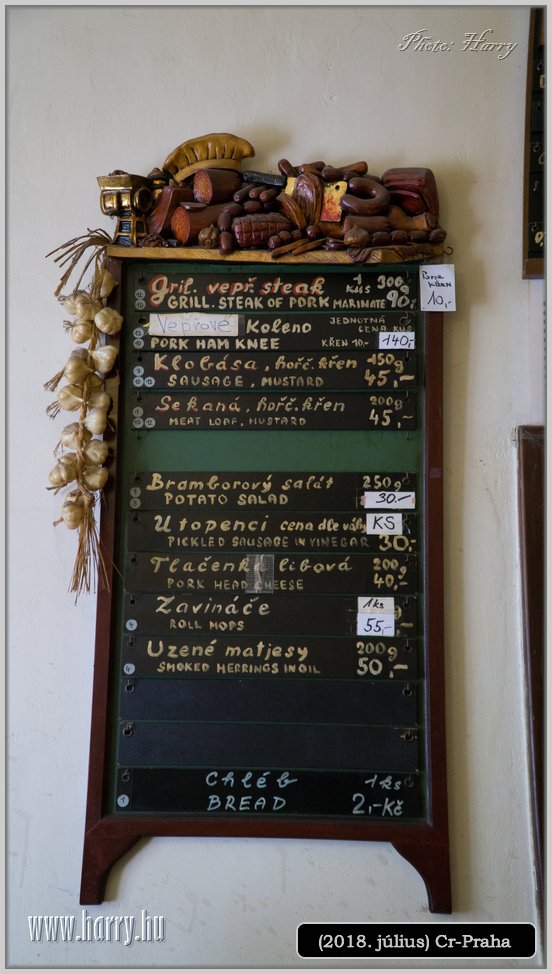 Photo: Harry
Gril. vepř. steak 1 kus 300g
GRILL. STEAK OF PORK MARINATE 90,-
Porce
KŘEN
10,-
Vepřové Koleno JEDNOTNÁ CENA KUS
PORK HAM KNEE KŘEN 10,- 140,-
Klobása, hořč. křen 150g
SAUSAGE, MUSTARD 45,-
Sekaná, hořč. křen 200g
MEAT LOAF, MUSTARD 45,-
Bramborový salát 250g
POTATO SALAD 30,-
Utopenci cena dle váhy KS
PICKLED SAUSAGE IN VINEGAR 30,-
Tlačenka libová 200g
PORK HEAD CHEESE 40,-
Zavináče 1ks
ROLL MOPS 55,-
Uzené matjesy 200g
SMOKED HERRINGS IN OIL 50,-
Chléb 1ks
BREAD 2,-Kč
www.harry.hu
(2018. július) Cr-Praha